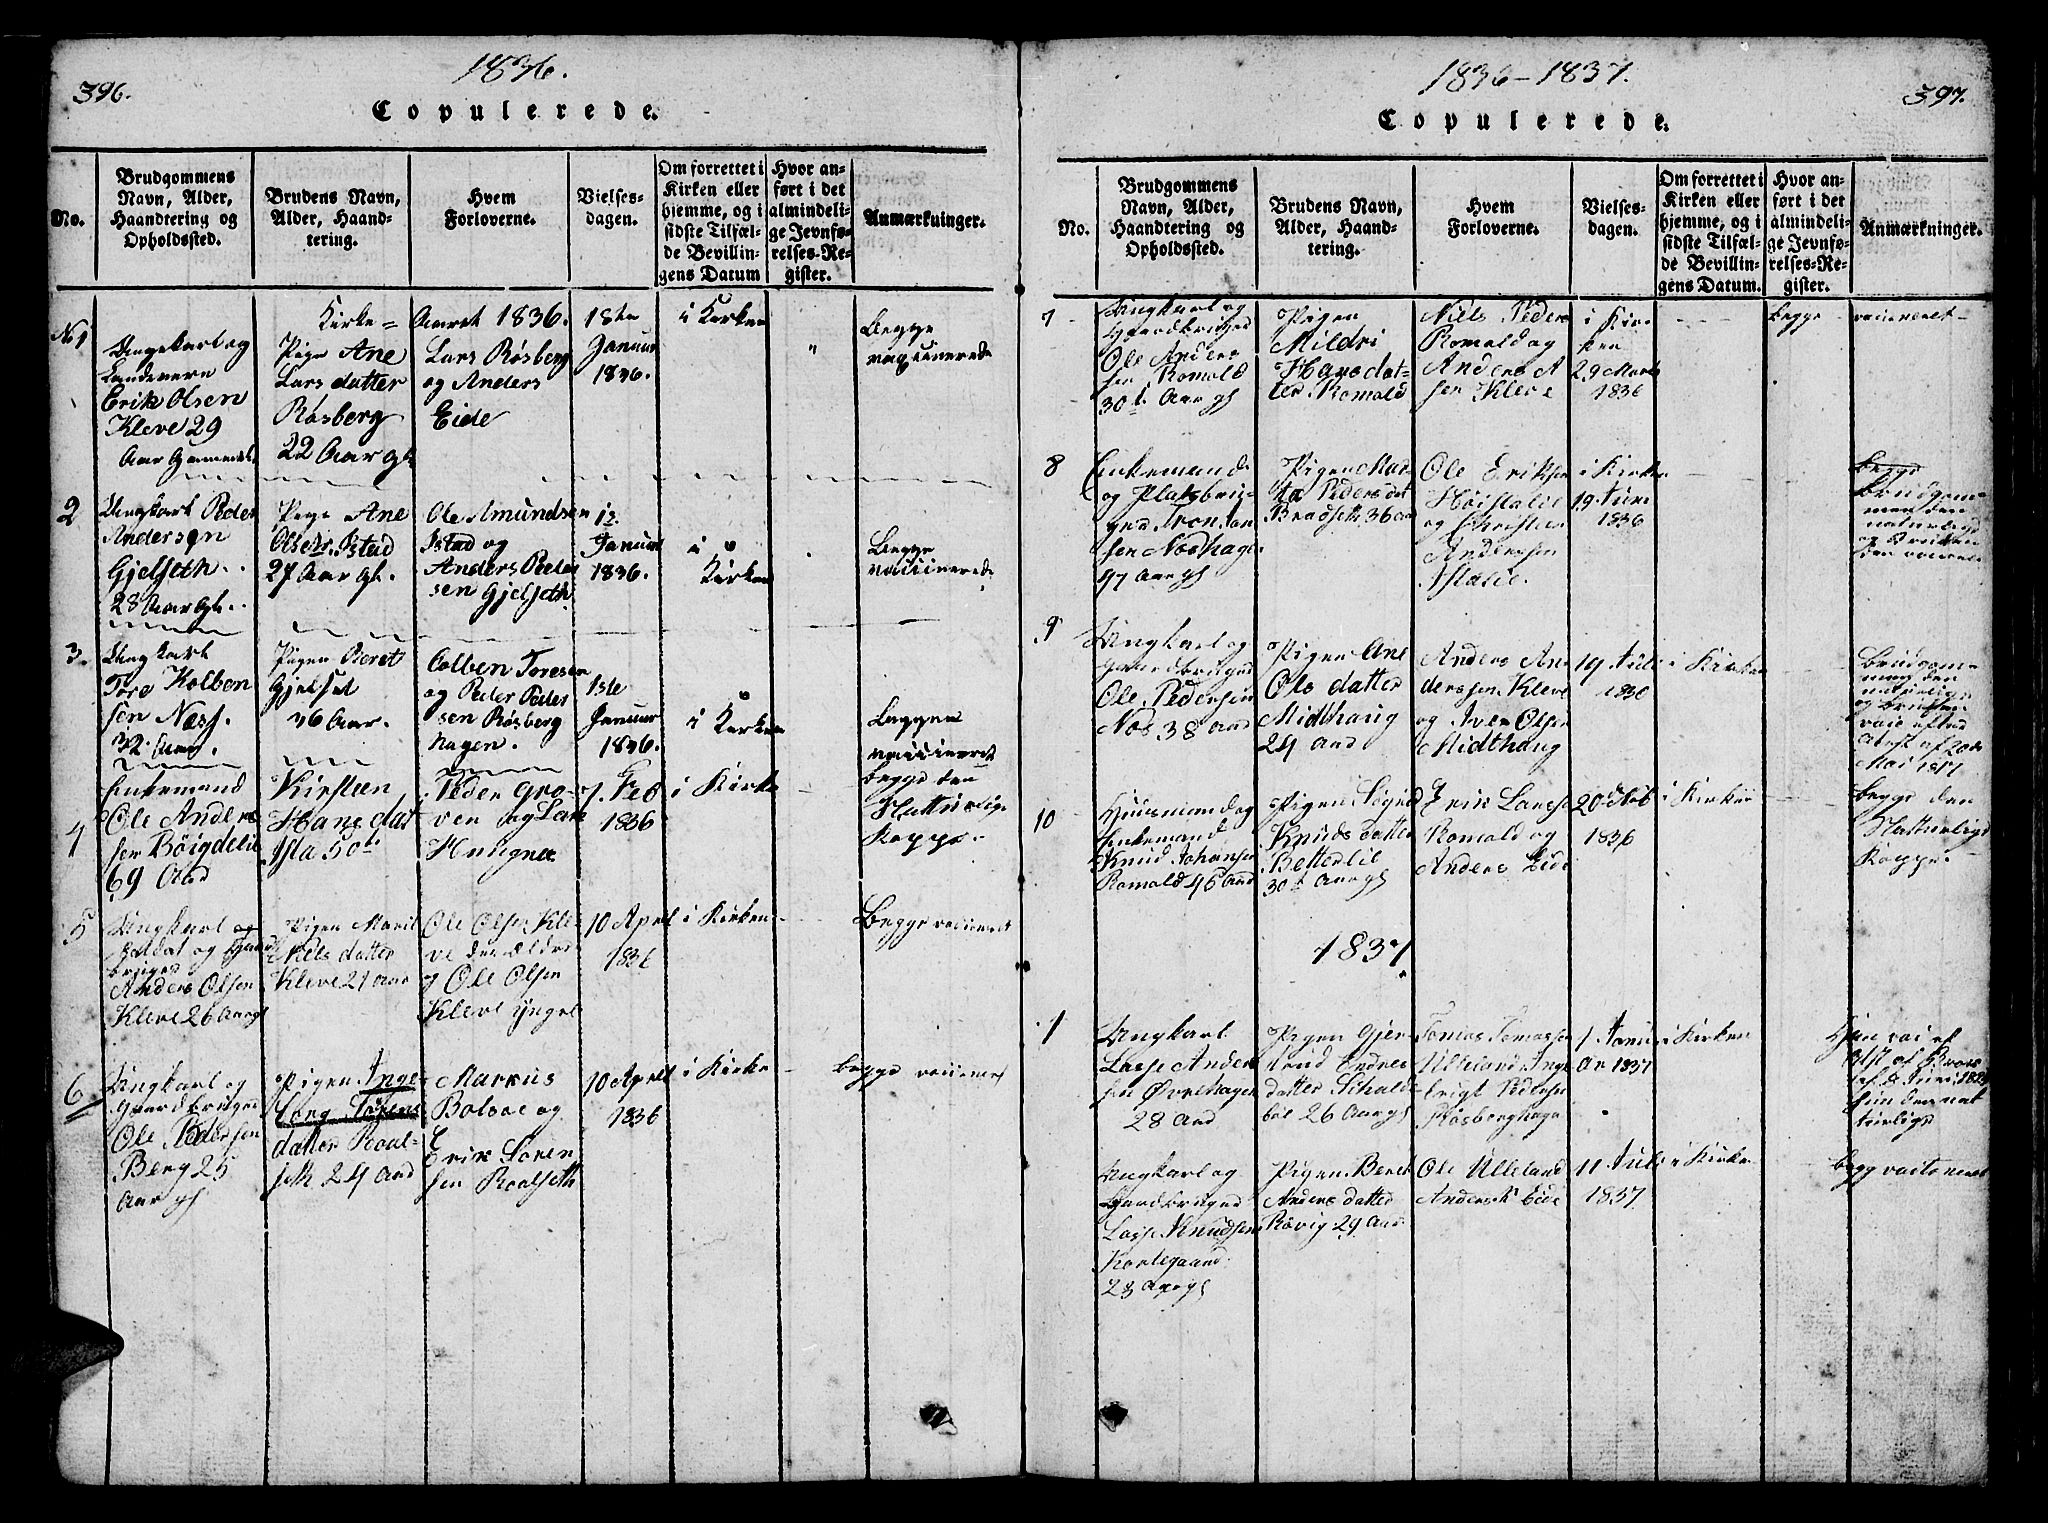 396.
1836.
Copulerede.
No.
Brudgommens Navn, Alder, Haandtering og Opholdssted.
Brudens Navn, Alder, Haandtering.
Hvem Forloverne.
Vielsesdagen.
Om forrettet i Kirken eller hjemme, og i sidste Tilfælde Bevillingens Datum
Hvor anført i det almindelige Jevnførelses-Register.
Anmærkninger.
Kirke = Aaret 1836.
No 1
Ungekarl og
Landevern
Erik Olsen
Kleve 29
Aar Gammel
Pige Ane
Lars datter
Røsberg
22 Aar gl.
Lars Røsberg
og Anders
Eide
18te
Januar
1836.
i Kirken
"
Begge
vaccinerede
2
Ungkarl Peder
Andersen
Gjelseth.
28 Aar gl.
Pige Ane
Olsdtr. Istad
27 Aar gl.
Ole Amundsen
Istad og
Anders Peder
sen Gjelseth
Januar
1836.
i
Kirken
Begge
vaccinerede
3.
Ungkarl
Tore Kolben
sen Næss.
32 Aar.
Pigen Beret
Gjelset
46 Aar.
Colben Toresen
og Peder Peder
sen Røsberg
hagen.
1ste
Januar
1836.
i Kirken
Begge
vaccineret
4
Enkemand
Ole Anders
sen Bøigdelie
69 Aar
Kirsteen
Hans dat
Ista 50
Peder Gro-
ven og Lars
7. Feb
1836
i Kirke
begge den
Natturlige
Koppe.
5
Ungkarl og
Soldat og Gaard
bruger
Anders Olsen
Kleve 26 Aar gl
Pigen Marit
Niels datter
Kleve 21 Aar
Ole Olsen Kle-
ve den ældre
og Ole Olsen
Kleve yngel
10 April
1836
i Kirken
Begge vacineret
6
Ungkarl og
Gaardbruger
Ole Pedersen
Berg 25
Aar gl
Pigen Inge-
borg Sørens
datter Roal-
seth 24 Aar
Markus
Bolsøe og
Erik Søren
sen Roalseth
10 April
1836
i Kirke
begge vacineret
1836-1837.
397.
Copulerede.
No.
Brudgommens Navn, Alder, Haandtering og Opholdssted.
Brudens Navn, Alder, Haandtering.
Hvem Forloverne.
Vielsesdagen.
Om forrettet i Kirken eller hjemme, og i sidste Tilfælde Bevillingens Datum.
Hvor anført i det almindelige Jevnførelses-Register.
Anmærkninger.
7
Ungkarl og
Gaardbruger
Ole Anders
sen Romald
30 Aar gl
Pigen
Mildri
Hansdat-
ter Romald
Niels Peders
Romald og
Anders A
sen Kleve
i Kir-
ken
29 Marts
1836
begge
vacineret
8
Enkemand
og Platsbru-
ger Tron Jon
sen Nœshagen
47 Aar gl
Pigen Mar-
ta Pedersdat
Bradseth 36 aar
Ole Eriksen
Høistalie
og Christen
Anderssen
Istalie.
i Kirken
19 Juni
1836
begge
brudgom-
men den
naturlige
og Bruden
den vacinet
9
Ungkarl og
Gaardbruger
Ole Pedersen
Nœs 38 aar
Pigen Ane
Ols datter
Midthaug
24 aar
Anders An
derssen Kleve
og Iver Olsen
Midthaug
19 Juli
1836
i Kirken
brudgom-
men den
naturlige
og bruden
vaci efter
Attest af 20de
Mai 1817
10
Huusmand og
Enkemand
Knud Johansen
Romald 46 Aar
Pigen Sigrid
Knuds datter
Betterlie
30 Aar gl
Erik Larssen
Romald og
Anders Eide
20 Feb
1836
i Kirken
begge den
Natturlige
Koppe.
1837
1
Ungkarl
Lasse Anders
sen Øverhagen
28 Aar
Pigen Gjer
trud Endres
datter Sihald
bøl 26 Aar gl
Tomas Tomassen
Ulleland Inge
brigt Pedersen
Røsberghagen
1 Janu
ar 1837
i Kirken
Hun den nat
turlige
Ungkarl og
Gaardbruger
Lasse Knudsen
Kortgaard
28 Aar gl
Pigen Beret
Anders datter
Røvig 29 Aar
Ole Ulleland
Anders Eide
11 Juli
1837
i Kirke
begg vacineret